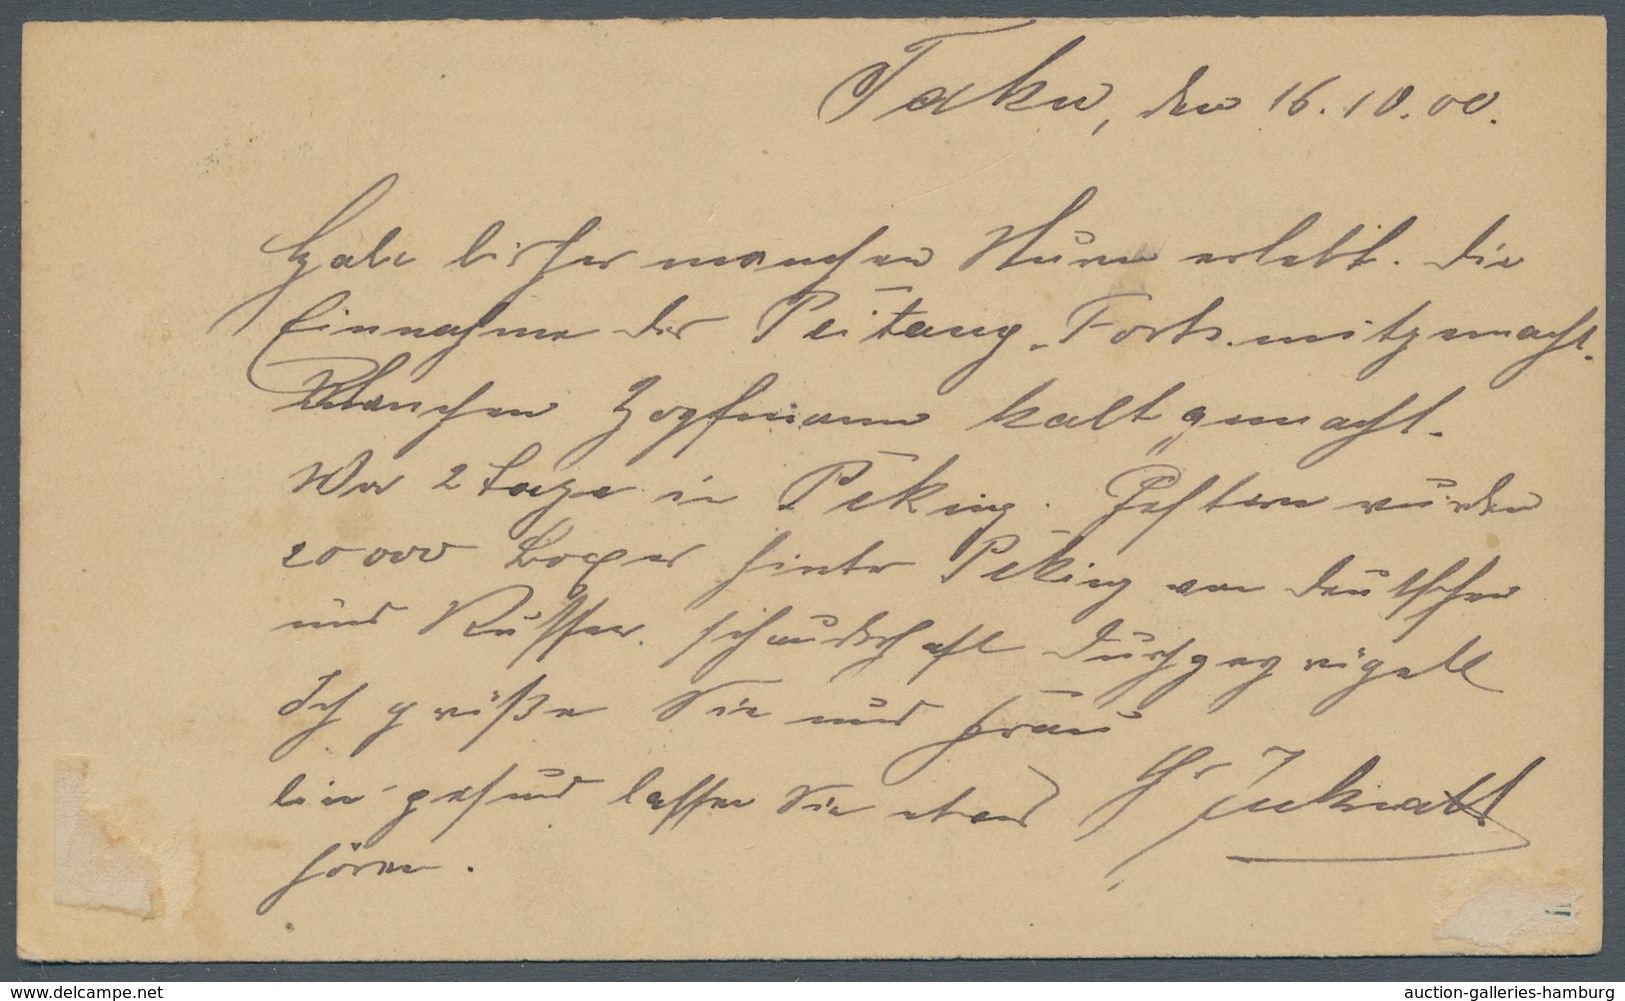 Taku, den 16.10.00.
Habe bisher manchen Sturm erlebt. Die
Einnahme der Peitang-Forts mitgemacht.
Manchen Zopfmann kalt gemacht.
War 2 Tage in Peking. Gestern wurden
20000 Boxer hinter Peking von Deutschen
und Russen schauderhaft durchgeprügelt
Ich grüße Sie und Frau
bin gesund lassen Sie etwas
hören.
www.delcampe.net
auction-galleries-hamburg